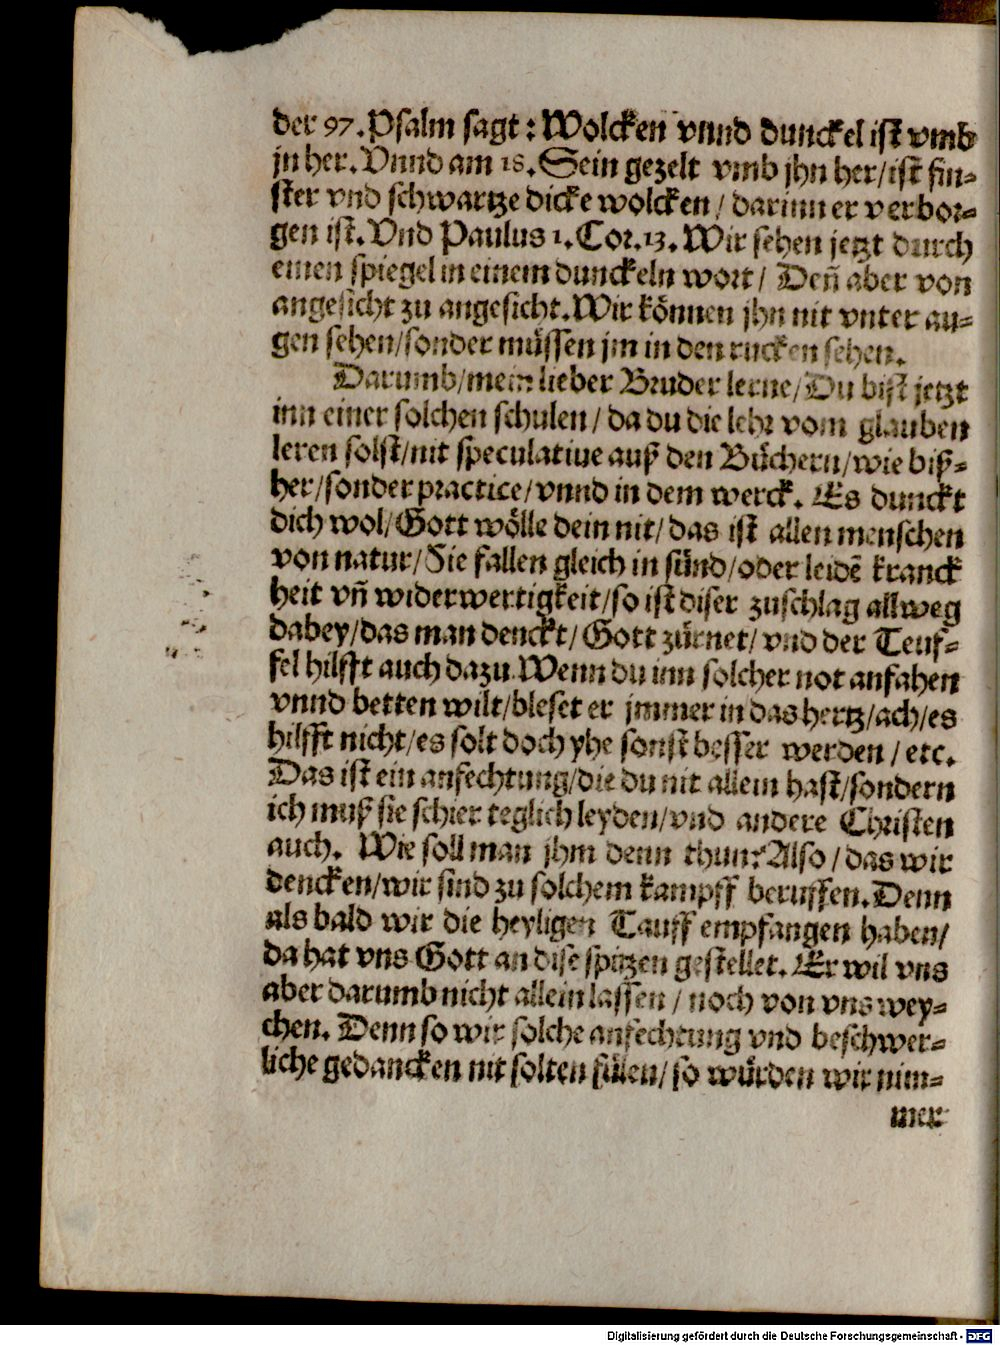 der 97. Psalm sagt: Wolcken vnnd dunckel ist vmb
jn her. Vnnd am 18. Sein gezelt vmb jhn her/ist fin-
ster vnd schwartze dicke wolcken/ darinn er verbor-
gen ist. Vnd Paulus 1. Cor. 13. Wir sehen jetzt durch
einen spiegel in einem dunckeln wort/ Deñ aber von
angesicht zu angesicht. Wir können jhn nit vnter au-
gen sehen/sonder müssen jm in den rucken sehen.
Darumb/mein lieber Bruder lerne/Du bist jetzt
inn einer solchen schulen/ da du die lehr vom glauben
leren solst/nit speculatiue auß den Büchern/wie biß-
her/sonder practice/vnnd in dem werck. Es dunckt
dich wol/Gott wölle dein nit/das ist allen menschen
von natur/Sie fallen gleich in sünd/oder leidē kranck
heit vñ widerwertigkeit/so ist diser zuschlag allweg
dabey/das man denckt/Gott zürnet/vnd der Teuf-
fel hilfft auch dazu. Wenn du inn solcher not anfahen
vnnd betten wilt/bleset er jmmer in das hertz/ach/es
hilfft nicht/es solt doch yhe sonst besser werden/etc.
Das ist ein anfechtung/die du nit allein hast/sondern
ich muß sie schier teglich leyden/vnd andere Christen
auch. Wie soll man jhm denn thun? Also/das wir
dencken/wir sind zu solchem kampff beruffen. Denn
als bald wir die heyligen Tauff empfangen haben/
da hat vns Gott an dise spitzen gestellet. Er wil vns
aber darumb nicht allein lassen/noch von vns wey-
chen. Denn so wir solche anfechtung vnd beschwer-
liche gedancken nit solten fülen/so würden wir nim-
mer
Digitalisierung gefördert durch die Deutsche Forschungsgemeinschaft - DFG